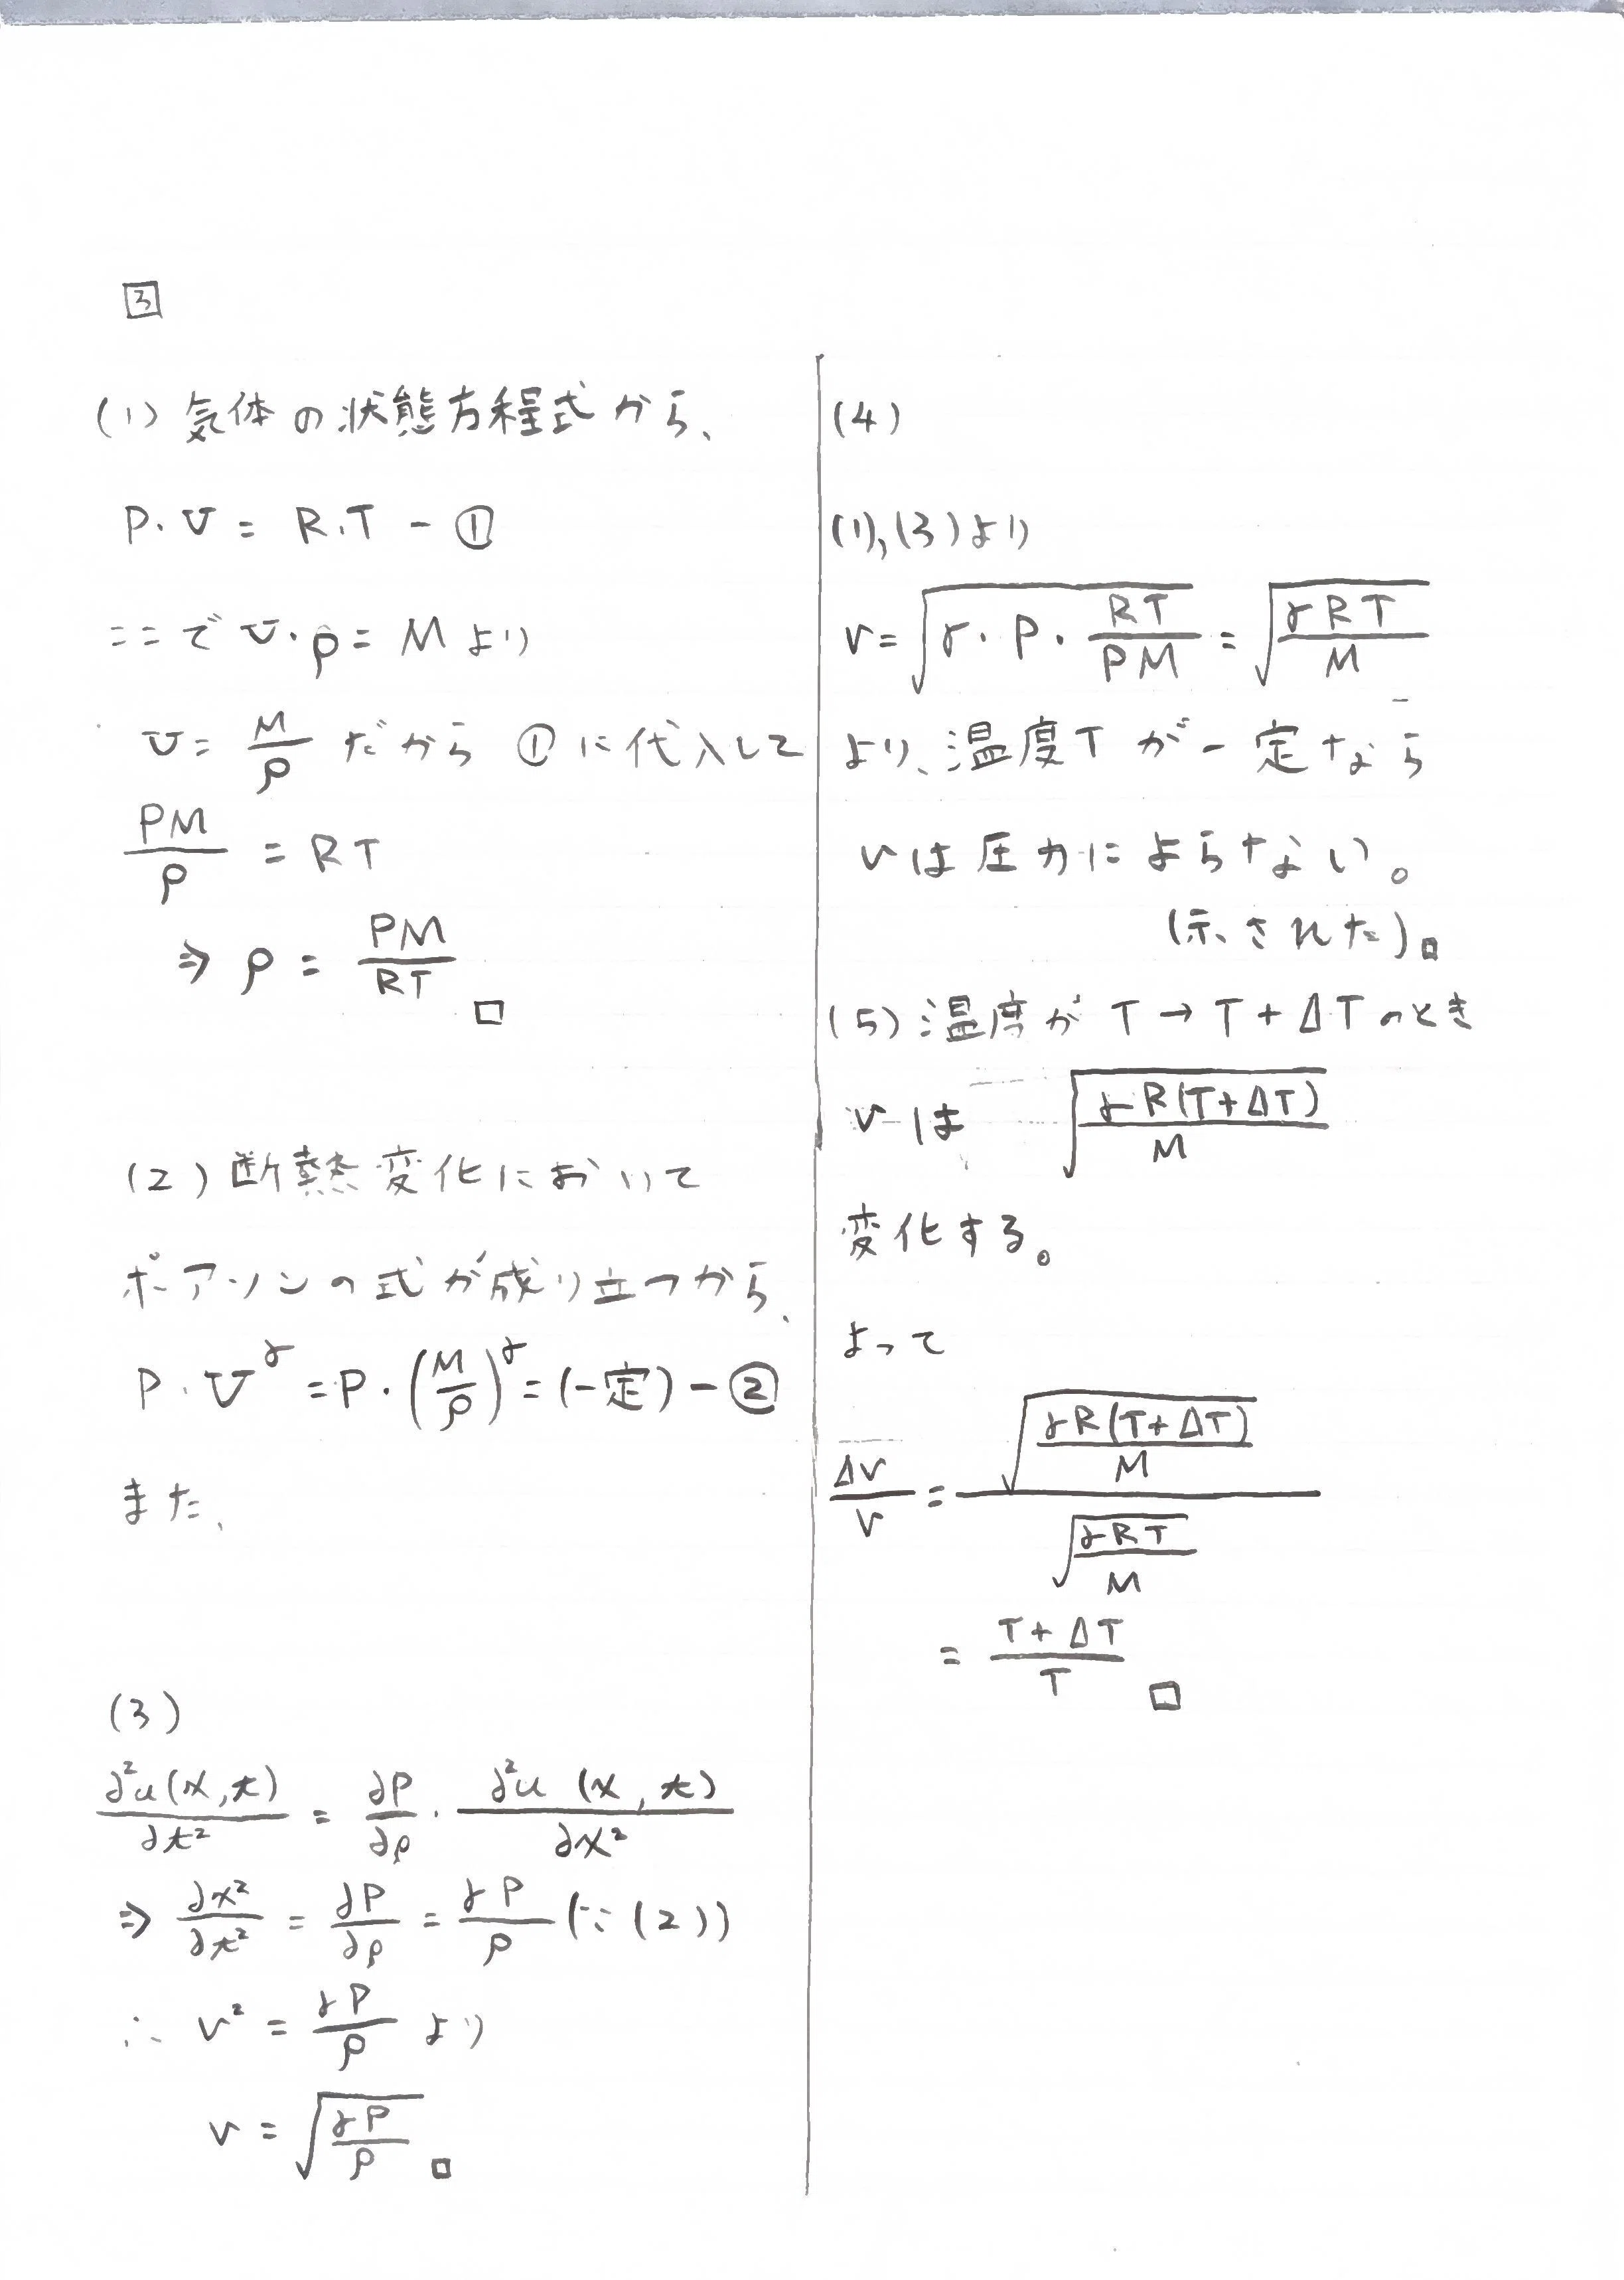 3
(1) 気体の状態方程式から、
P・V = R.T - ①
ここで V・ρ = M より
V = M/ρ だから ①に代入して
PM/ρ = RT
⇒ ρ = PM/RT □
(2) 断熱変化において
ポアソンの式が成り立つから、
P・V^γ = P・(M/ρ)^γ = (一定) - ②
また、
(3)
∂²u(x,t)/∂t² = ∂P/∂ρ・∂²u(x,t)/∂x²
⇒ ∂x²/∂t² = ∂P/∂ρ = γP/ρ (∵(2))
∴ v² = γP/ρ より
v = √(γP/ρ) □
(4)
(1),(3)より
v = √(γ・P・RT/PM) = √(γRT/M)
より、温度Tが一定なら
vは圧力によらない。
(示された)□
(5) 温度が T → T + ΔT のとき
vは √(γR(T+ΔT)/M)
変化する。
よって
Δv/v = √(γR(T+ΔT)/M) / √(γRT/M)
= T+ΔT/T □